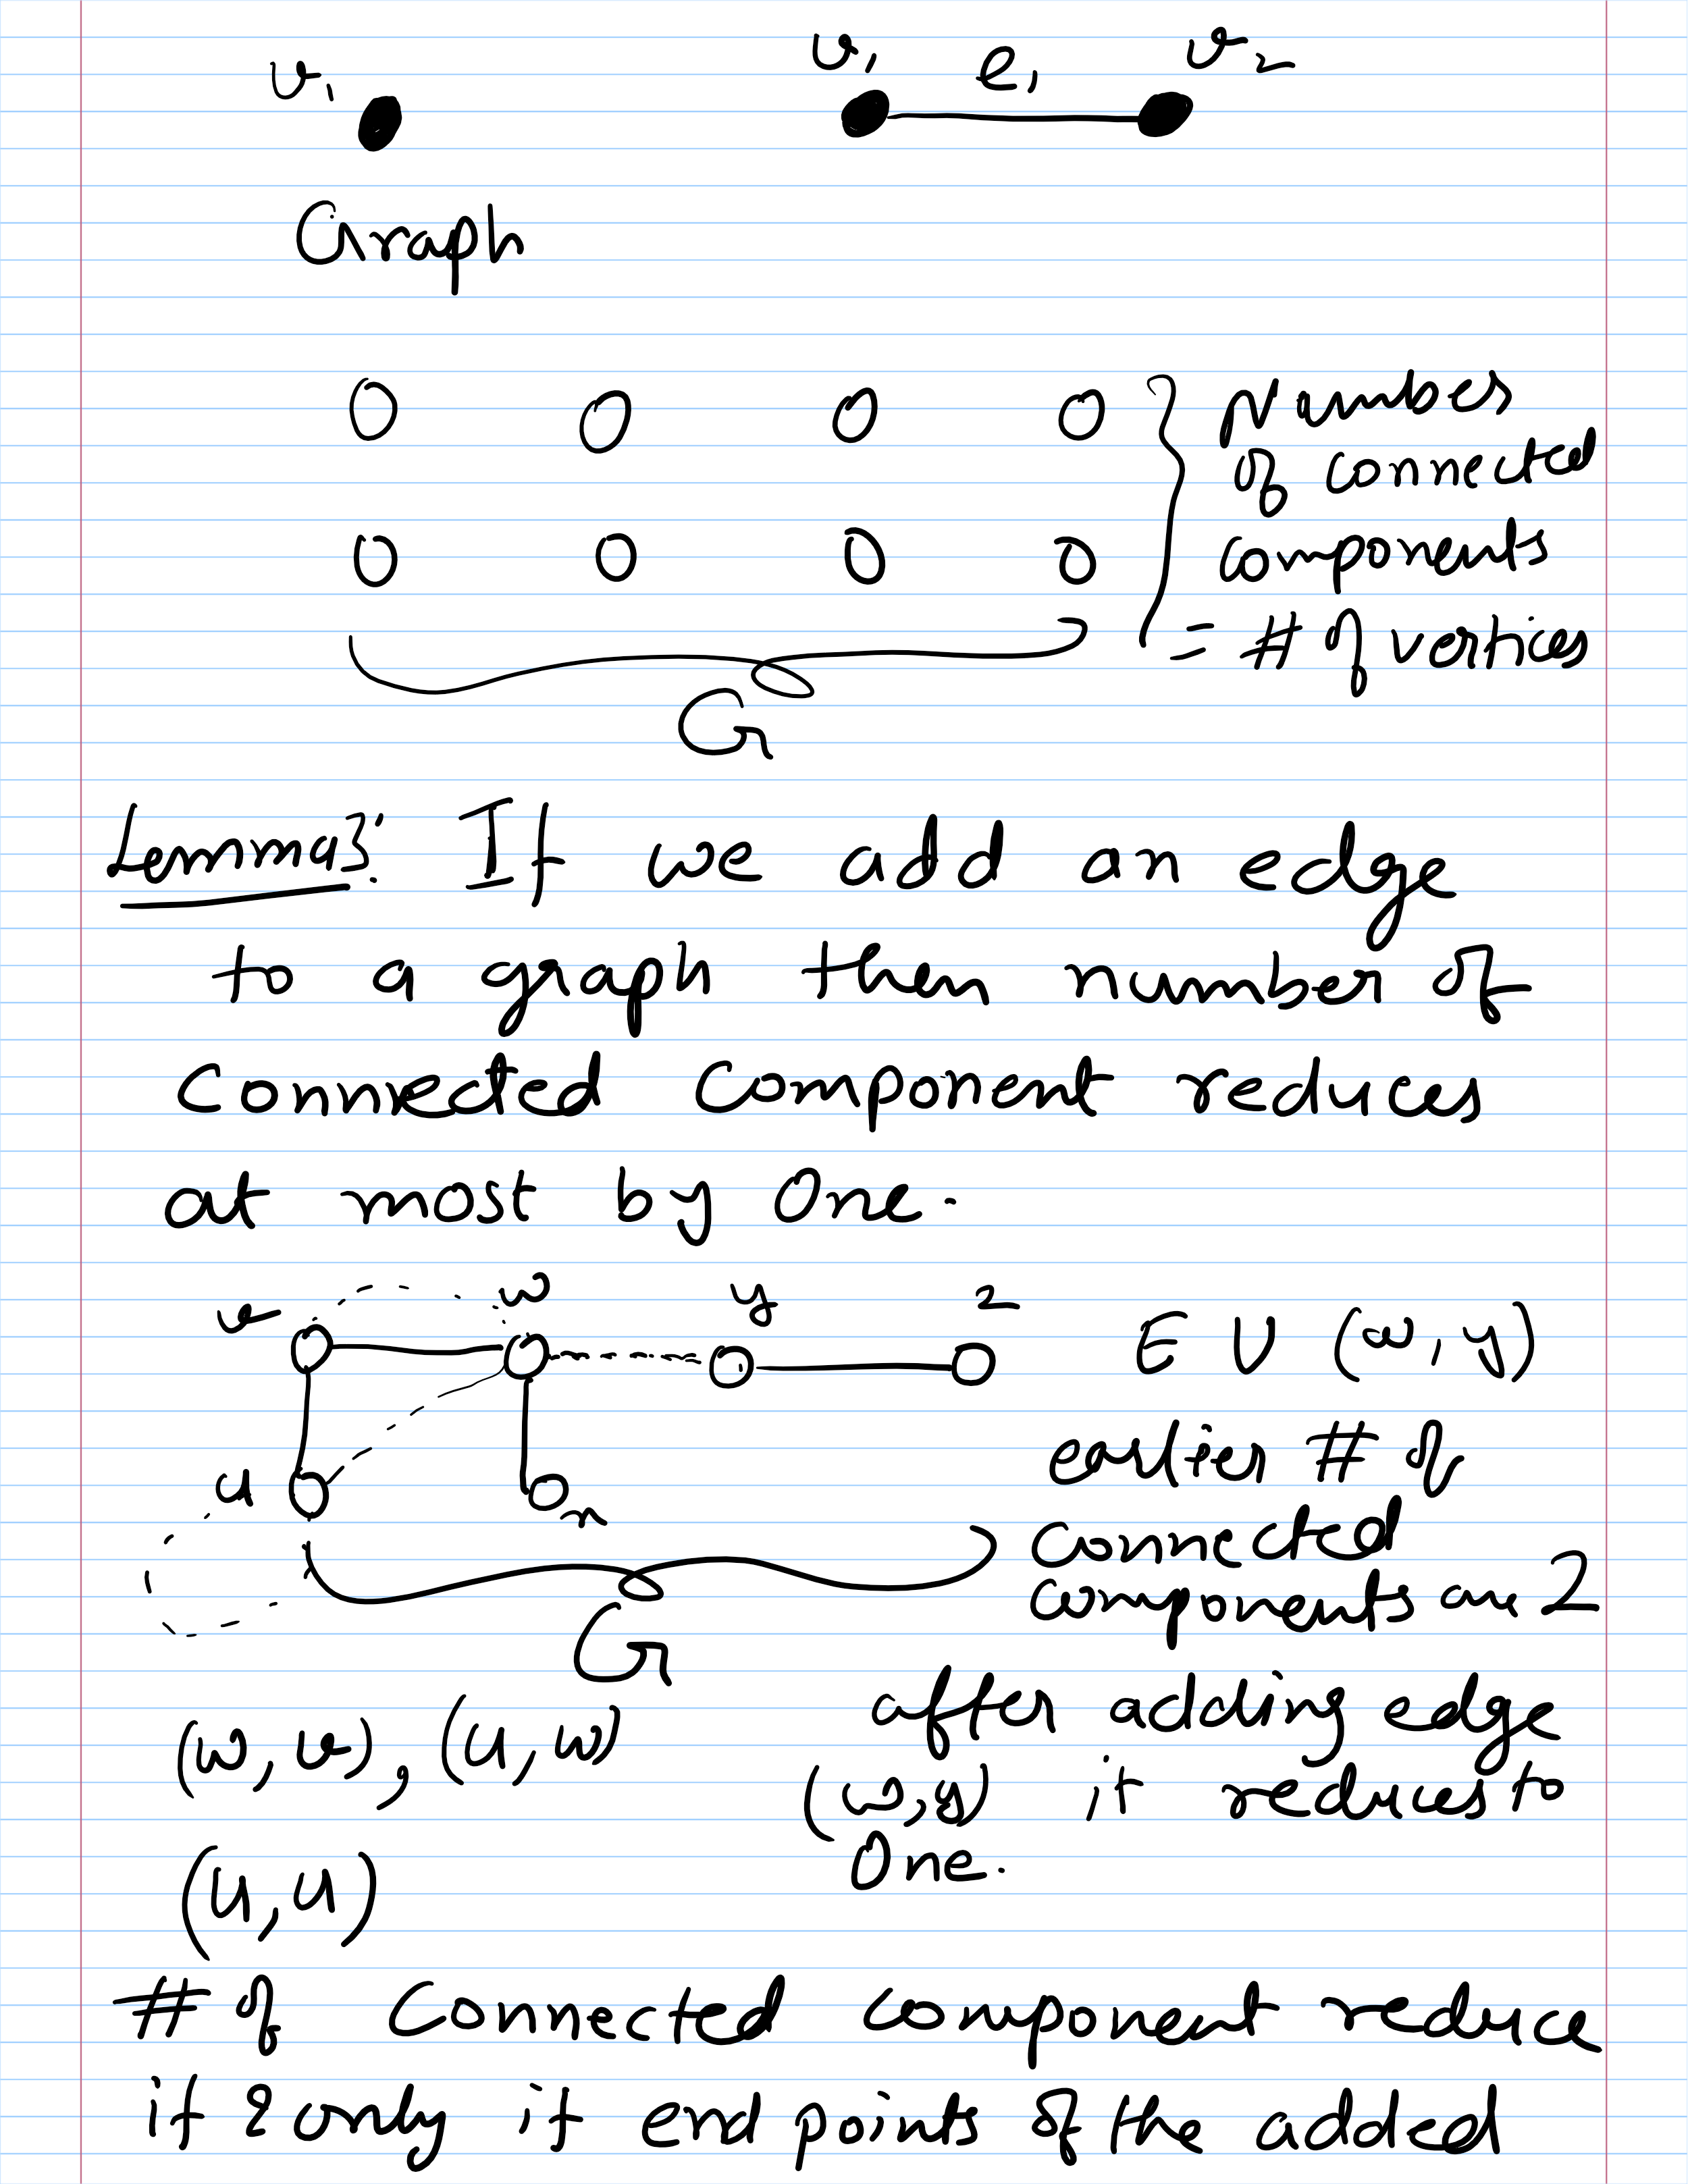 v₁ v₁ e₁ v₂
Graph
Number
of connected
components
= # of vertices
G
Lemma 3: If we add an edge
to a graph then number of
connected component reduces
at most by One.
v w y z E U (w, y)
earlier # of
u x connected
components are 2
G
after adding edge
(w, v), (u, w)
(w, y) it reduces to
One.
(u, u)
# of connected component reduce
if & only if end points of the added